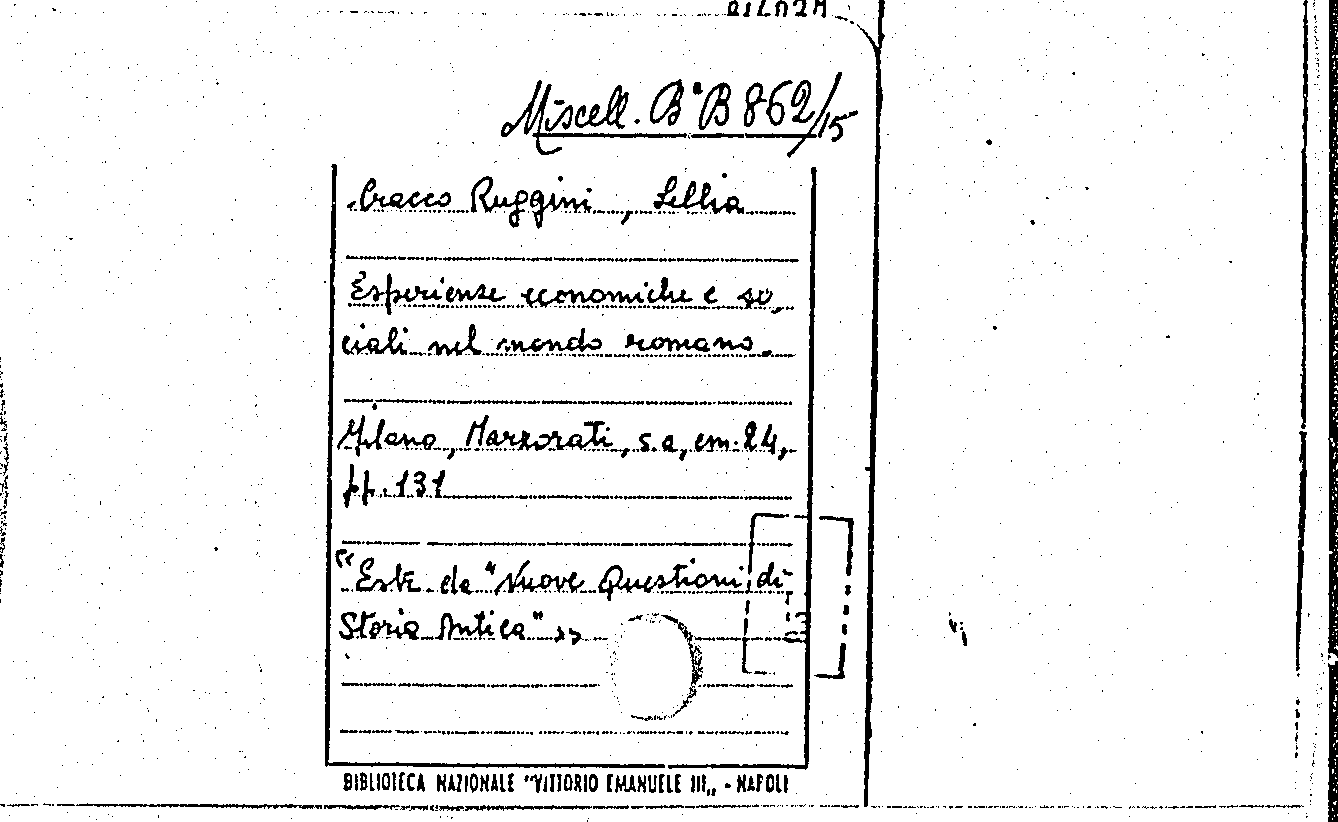 Miscell. B*B 862/15
Cracco Ruggini, Lellia
Esperienze economiche e so,
ciali nel mondo romano.
Milano, Marzorati, s.a, cm. 24,
pp. 131
“Estr. da "Nuove Questioni di
Storia Antica" »
BIBLIOTECA NAZIONALE "VITTORIO EMANUELE III„ - NAPOLI